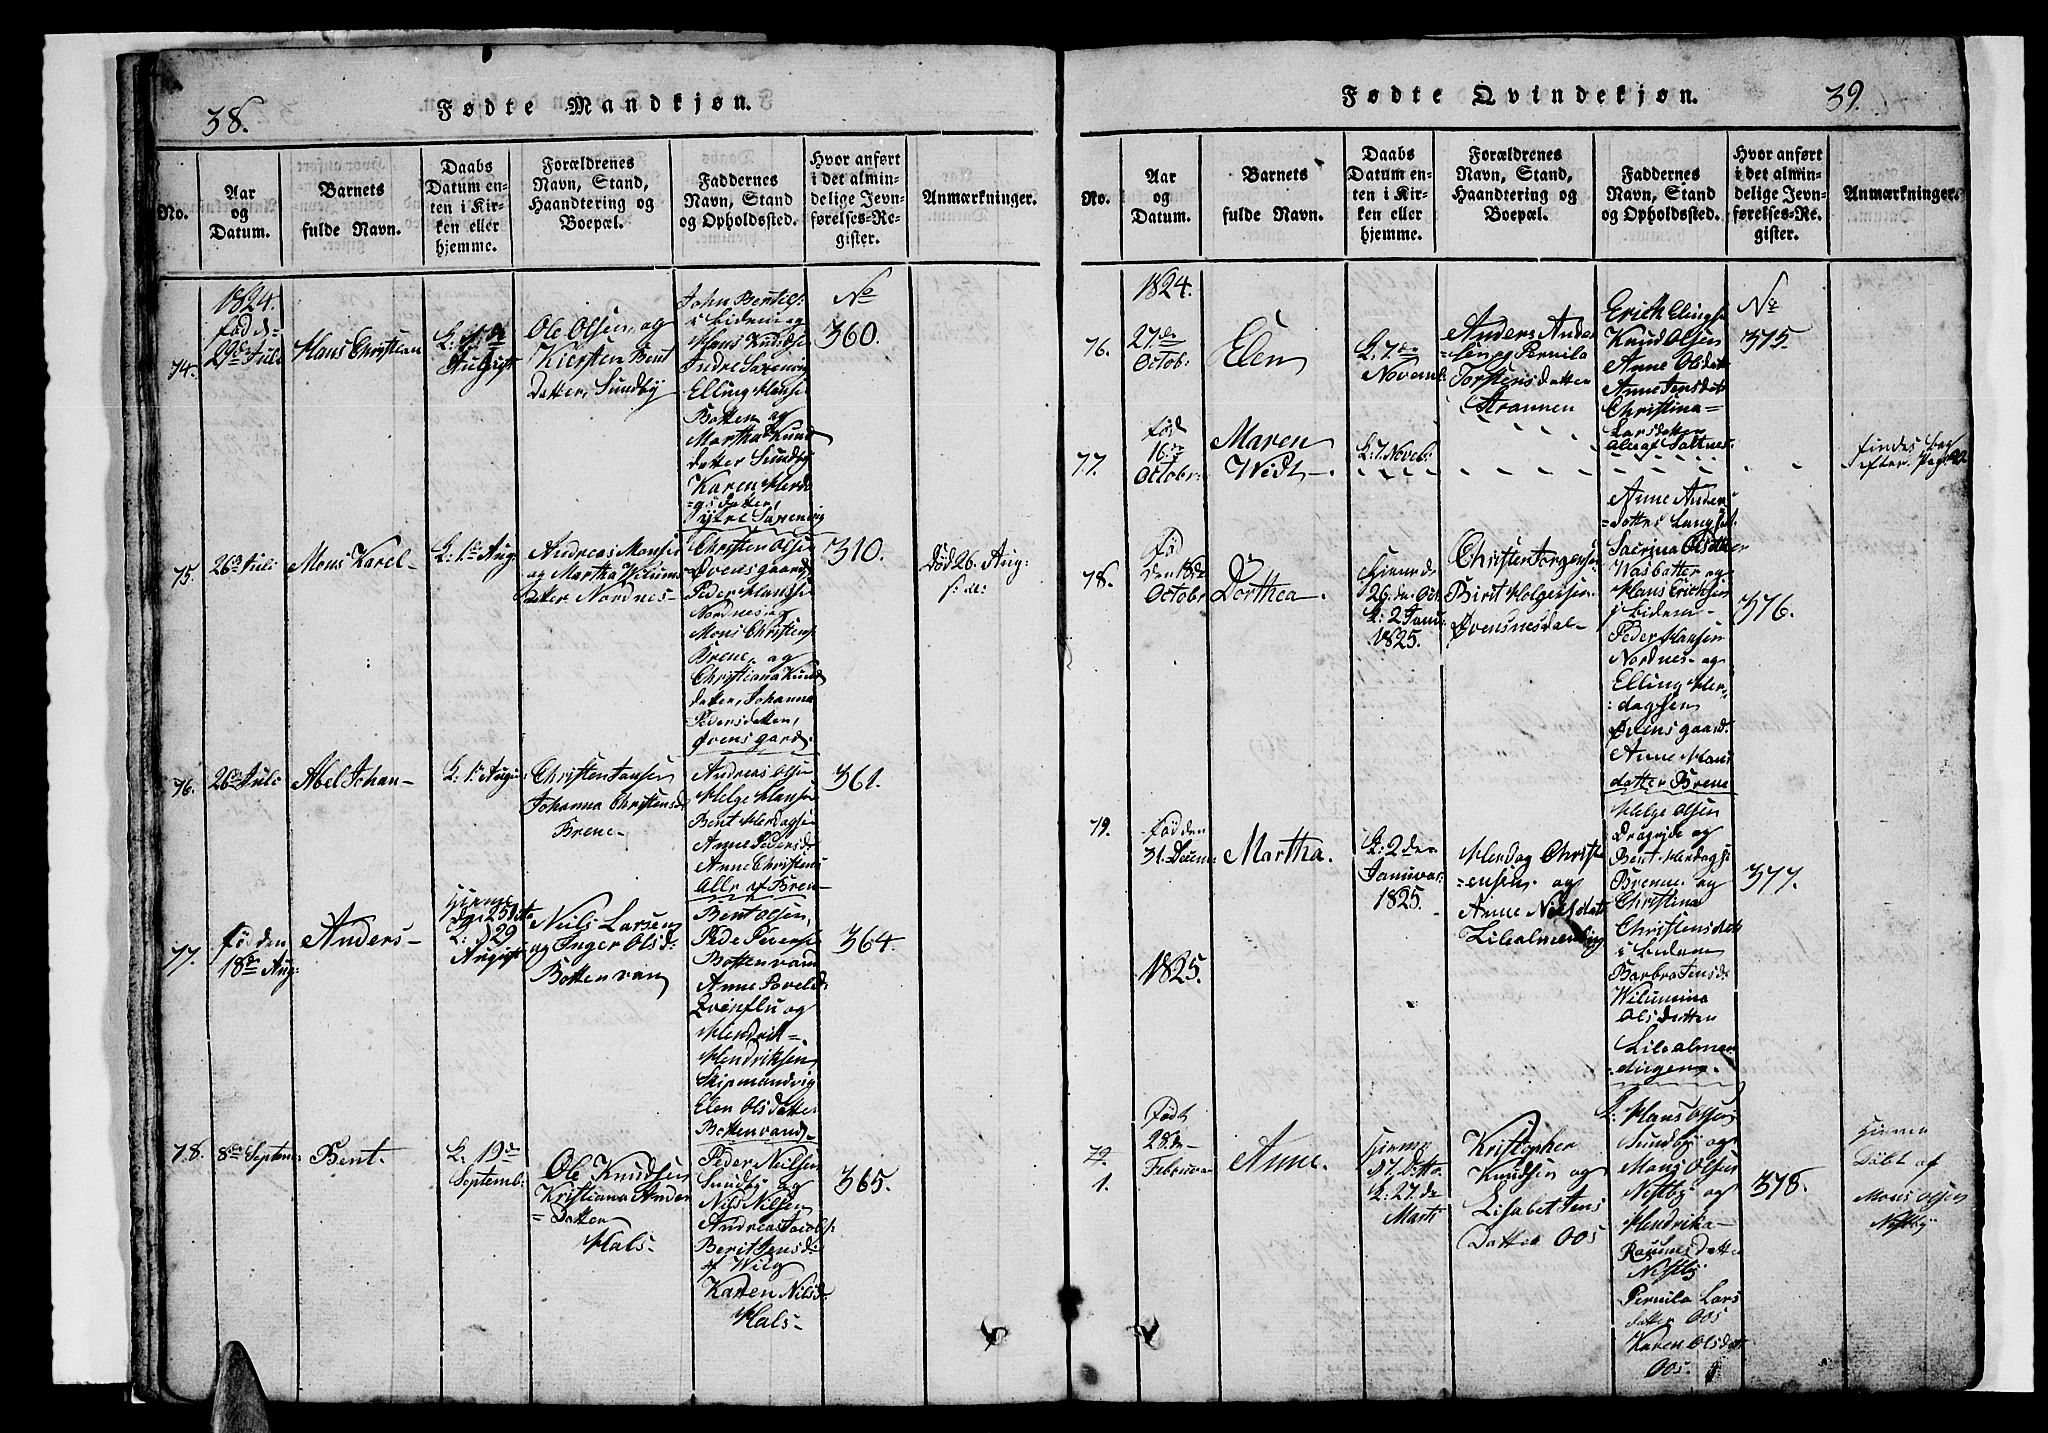 38.
Fødte Mandkjøn.
No.
Aar
og
Datum.
Barnets
fulde Navn.
Daabs
Datum en-
ten i Kir-
ken eller
hjemme.
Forældrenes
Navn, Stand,
Haandtering og
Boepæl.
Faddernes
Navn, Stand
og Opholdssted.
Hvor anført
i det almin-
delige Jevn-
førelses-Re-
gister.
Anmærkninger.
74.
1824.
fød d=
29de Juli
Hans Christian
K: 1ste
August
Ole Olsen, og
Kiersten Bent
Datter, Sundby
John Bentes:
ibidem og
Hans Knuds
Andre
Elling Hans
Botten og
Martha Knud
datter Sundby
Karen Herda
gsdatter,
ytre
No
360.
75.
26de Juli
Mons Karel-
K: 1te Aug:
Andreas Monsen
og Martha Wilums
datter Nordnes-
Christen Olsen
Øvensgaard,
Peder Hanse
Nordnes, og
Mons Christens
Brene, og
Christiana Knud
datter, Johanna
Pedersdatter,
Øvensgaard.
310.
Død 26. Aug:
s: a:
76.
26de Juli
Abel Johan-
K: 1te Augu:
Christen Jansen
Johanna Christensd
Brene-
Andreas Olsen
Helge Hanse
Bent Herdagsen
Anne Pedersd
Anne Christens
Alle af Bren-
361.
77.
fød den
18de Aug:
Anders-
hjeme
25
K: 29
August
Niels Larsen
og Inger Olsd:
Bottenvan
Bent Olsen,
Pede Peiersen
Bottenvand
Anne Poveld:
og
Hendrik=
Hendriksen
Skipmandvig
Elen Olsdatte
Bottenvand-
364.
78.
8de Septem:
Bent.
K: 19de
Septemb:
Ole Knudsen
Kristiana Ander
=datter
Hals-
Peder Neilsen
Sundby og
Nils Nilsen
Andreas Jacobs:
Berit Jensd:
af Wig
Karen Nilsd:
Hals-
365.
Fødte Qvindekjøn.
39.
No.
Aar
og
Datum.
Barnets
fulde Navn.
Daabs
Datum en-
ten i Kir-
ken eller
hjemme.
Forældrenes
Navn, Stand,
Haandtering og
Boepæl.
Faddernes
Navn, Stand
og Opholdssted.
Hvor anført
i det almin-
delige Jevn-
førelses-Re-
gister.
Anmærkninger.
76.
1824.
27de
Octob:
Elen
K: 7de
Novemb:
Anders Ander
=sen og Pernila
Torstensdatter
Strannen
Erich Elings
Knud Olsen
Anne Olsdatt
Anne Jensdat
Christina=
Larsdatter
Alle af Saltnes
No
375.
77.
fød
16de
Octobr:
Maren
Widt-
K: 7. Noveb:
findes bag
efter Pag:
78.
fød
den 18de
Octobr
Dorthea.
Hiemed
26. de. Oct.
K: 2 Janu
1825.
Christen Jørgensen
Birit Holgersen
Øvensnesdal-
Anne Anders
=datter Langset,
Olsdatter
Wasbatten og
Hans Erichsen
ibidem-
Peder Hansen
Nordnes- og
Elling Her-
:dagsen
Øvensgaard.
Anne Hans
datter Brene
376.
79.
fød den
31. Decem:
Martha.
K: 2de-
Januvar
1825.
Herdag Christ
=ensen. og
Anne Nielsdat
Lilealmening
Helge Olsen
Dragejde og
Bent Herdags:
Brenne. og
Christina
Christensdat
ibidem
Barbra Jensd:
Wilumina
Olsdatter
Lilealmen
=dingen.
377.
1825.
79.
1.
født
28de-
Februar
Anne.
hjeme
17. Detto
K: 27. de
Marti
Kristopher
Knudsen og
Lisabet Jens
Datter Oos
Hans Olsen
Sundby og
Mons Olsen
Nestby og
Hendrika-
Rasmusdatter
Nestby
Pernila Lars
datter Oos
Karen Olsdat
Oos.
378.
hiema
Døbt af
Mons Olsen
Nestby